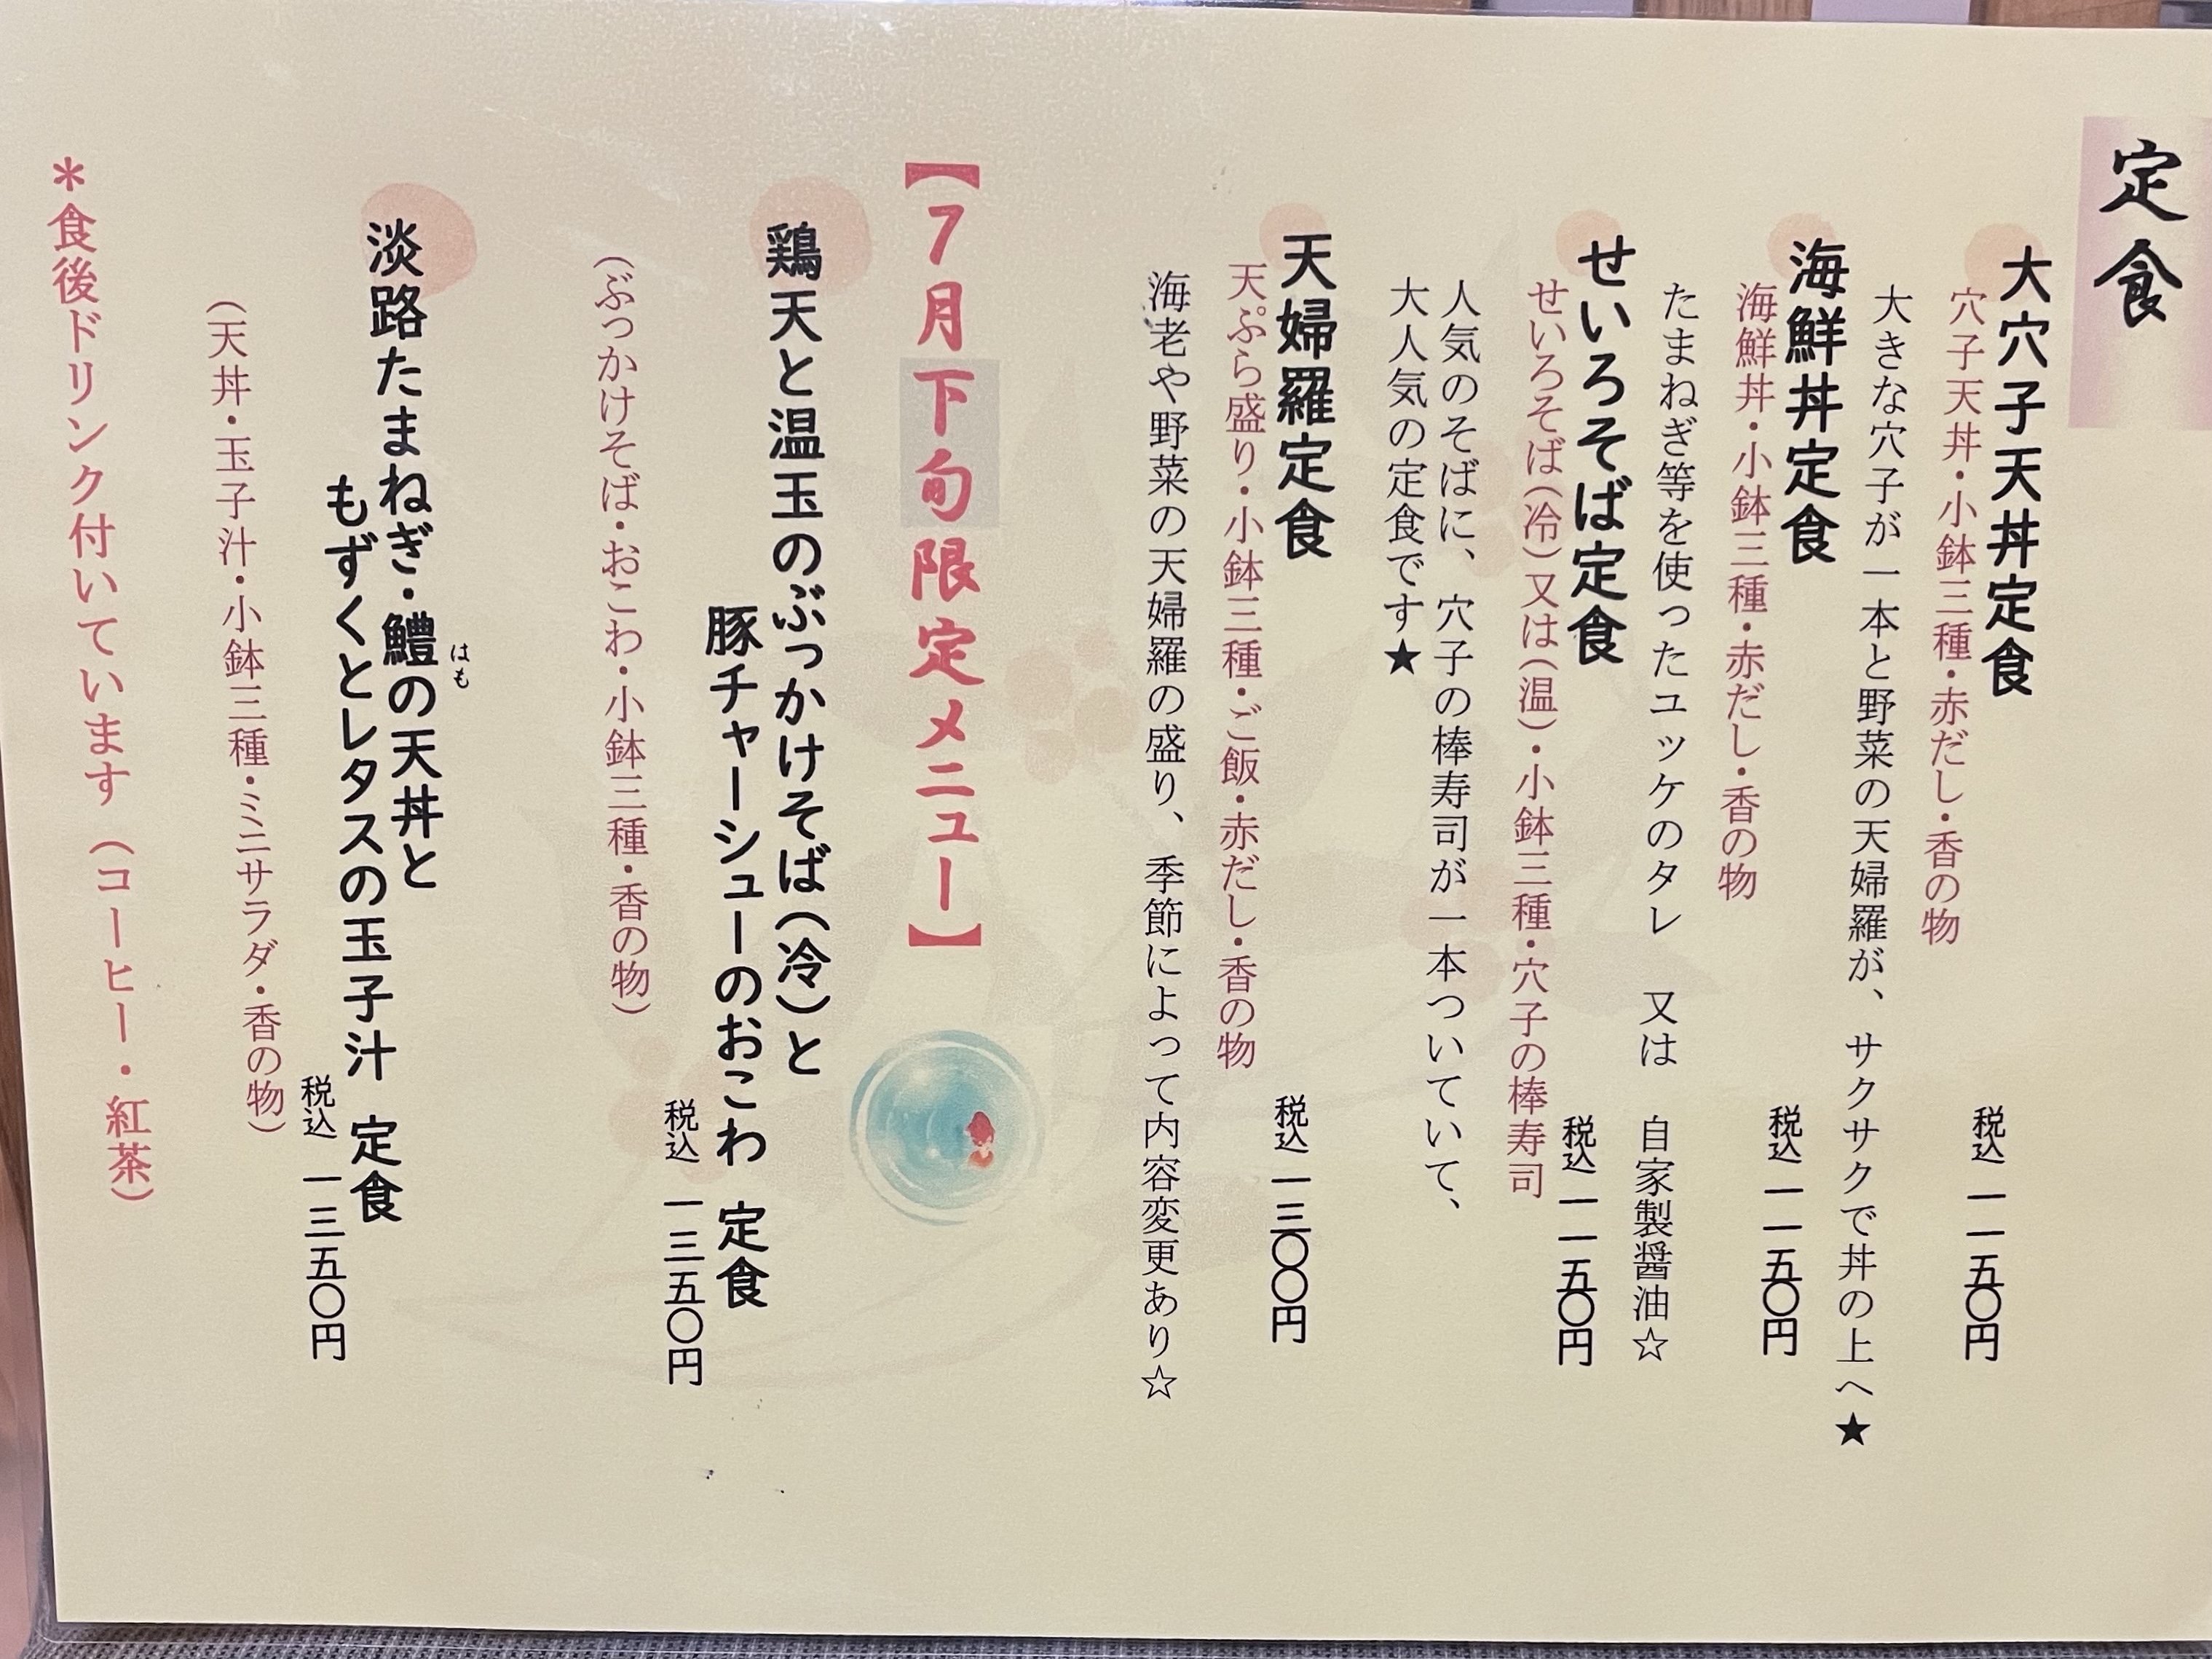 定食
大穴子天丼定食
税込 一一五〇円
穴子天丼・小鉢三種・赤だし・香の物
大きな穴子が一本と野菜の天婦羅が、サクサクで丼の上へ★
海鮮丼定食
税込 一一五〇円
海鮮丼・小鉢三種・赤だし・香の物
たまねぎ等を使ったユッケのタレ 又は 自家製醤油☆
せいろそば定食
税込 一一五〇円
せいろそば(冷)又は(温)・小鉢三種・穴子の棒寿司
人気のそばに、穴子の棒寿司が一本ついていて、
大人気の定食です★
天婦羅定食
税込 一三〇〇円
天ぷら盛り・小鉢三種・ご飯・赤だし・香の物
海老や野菜の天婦羅の盛り、季節によって内容変更あり☆
【7月下旬限定メニュー】
鶏天と温玉のぶっかけそば(冷)と
豚チャーシューのおこわ 定食
税込 一三五〇円
(ぶっかけそば・おこわ・小鉢三種・香の物)
はも
淡路たまねぎ・鱧の天丼と
もずくとレタスの玉子汁 定食
税込 一三五〇円
(天丼・玉子汁・小鉢三種・ミニサラダ・香の物)
＊食後ドリンク付いています(コーヒー・紅茶)